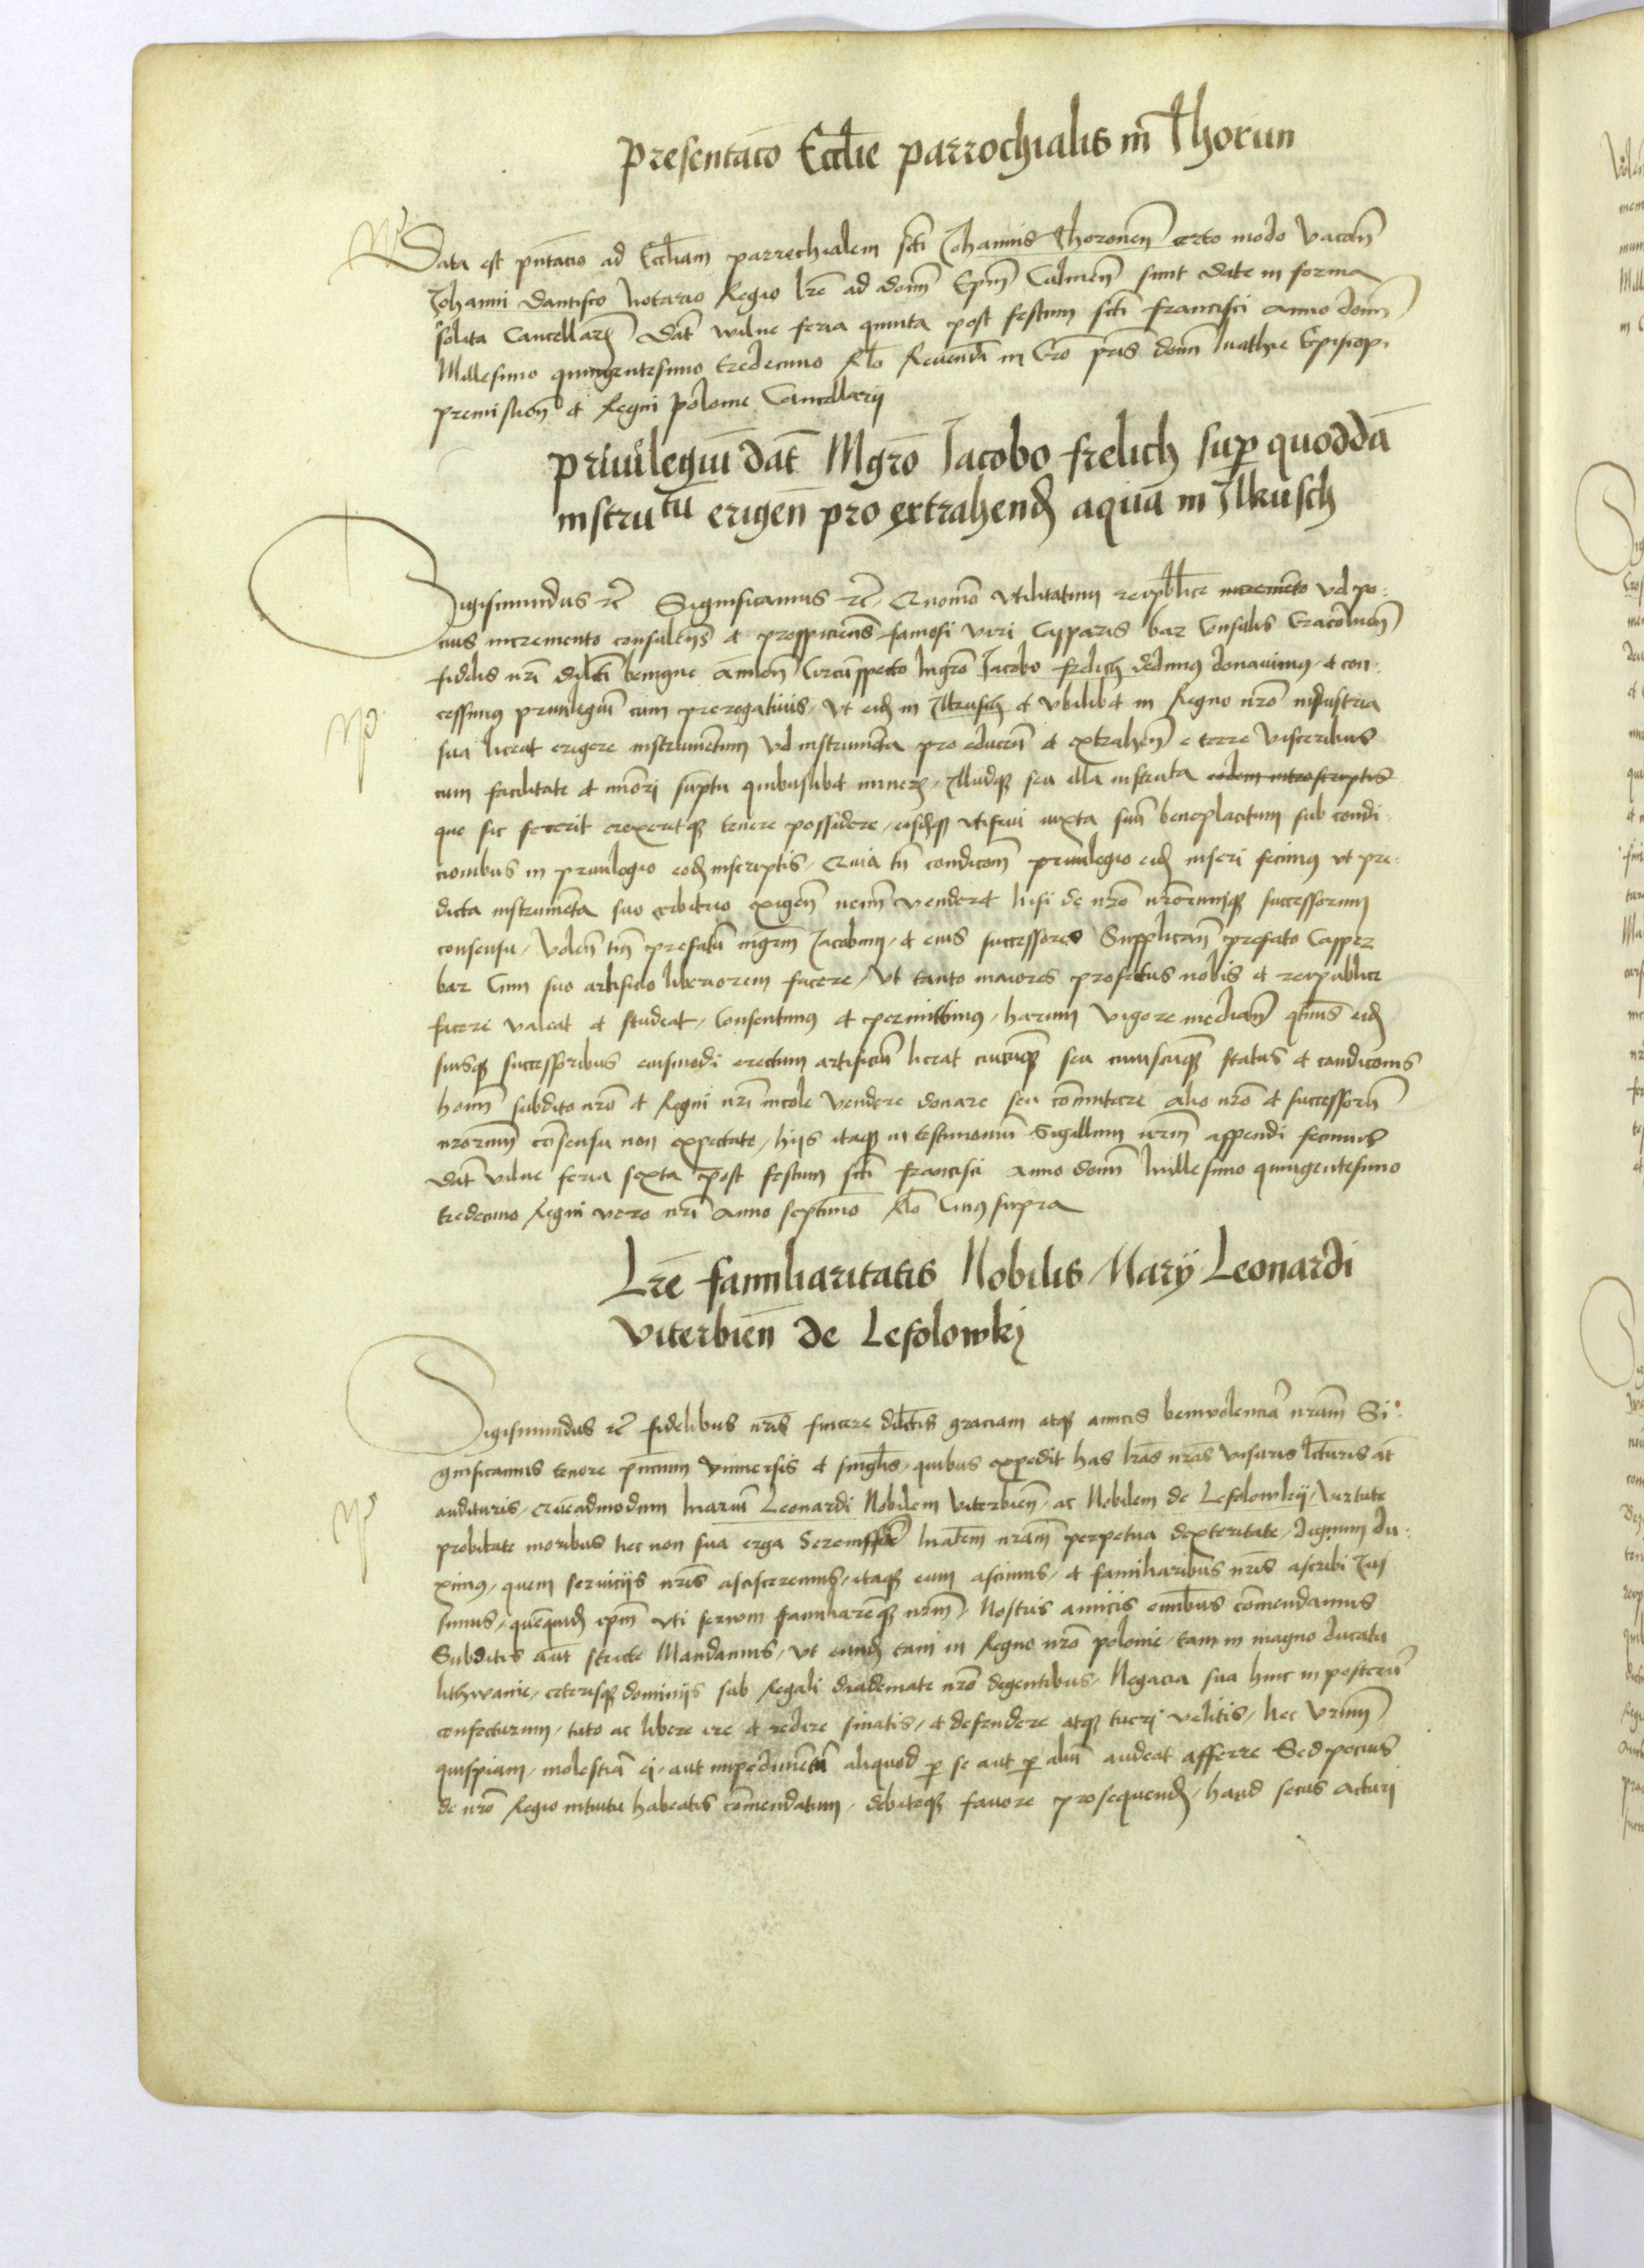 presentacō Ecclīe parrochialis in Thorun
Data est pn̄tacio ad Eccl̄iam parrochialem scti Johannis Thoronen̄ certo modo vacan̄
Johanni dantisco Notario Regio lr̄e ad dom̄ Ep̄m Culmen̄ sunt date in forma
solita Cancellar̄ Dat̄ wilne feria quinta post festum scti francisci anno dom̄
Millesimo quingentesimo tredecimo Rlō Reuendi in Cro pr̄is dom̄ Mathie Episcopi
premislien̄ et Regni polonie Cancellarij
priuilegiū dat̄ Mgrō Jacobo frelich sup quoddā
instrutū erigen̄ pro extrahend̄ aquā in Ilkusch
Sigismundus rc̄ Significamus rc̄ Quomō vtilitatum reipublice incremēto vel po:
cius incremento consulen̄s et prospiciens famosi viri Casparis bar Consulis Cracouien̄
fidelis nr̄i dilcti benigne Circūspecto Mgrō Jacobo frelich dedimus donauimus et con:
cessimus priuilegiū cum prerogatiuis, Vt eid̄ in Ilkusch et vbilibet in Regno nrō industria
sua liceat erigere instrumētum vel instrumēta pro educen̄ et extrahen̄ e terre visceribus
cum facilitate et min̄ori sūptu quibuslibet miner̄, Illudq seu illa instruta eodem introscriptis
que sic fecerit erexeritq tenere possidere, eisdq vtifrui iuxta suū beneplacitum sub condi
cionibus in priuilegio eod̄ inscriptis, Quia tn̄ condicōm priuilegio eid̄ inseri fecimus vt pre:
dicta instrumēta suo arbitrio exigen̄ nemī venderet Nisi de nrō nrōrumq successorum
consensu, Volen̄ tn̄ prefatū mgrm̄ Jacobum, et eius successores Supplican̄ prefato Casper
bar Cum suo artificio liberiorem facere, Vt tanto maiores profectus nobis et reipublice
facere valeat et studeat, Consentimus et permittimus, harum vigore median̄ qtenus eid̄
suisq successoribus eiusmodi erectum artificiū liceat cuicūq seu cuiuscūq status et condicōnis
homī subdito nrō et Regni nr̄i incole vendere donare seu cōmutare alio nrō et successorū
nrōrum cōsensu non expectato, hijs itaq in testimoniū Sigillum nrm̄ appendi fecimus
Dat̄ vilne feria sexta post festum scti francisci anno dom̄ Millesimo quingentesimo
tredecimo Regni vero nr̄i anno septimo Rlō Cuius supra
Lr̄e familiaritatis Nobilis Marij Leonardi
Viterbien̄ de Lesolowkj
Sigismundus rc̄ fidelibus nr̄is sincere dilctis graciam atq amicis beniuolenciā nrām Si:
gnificamus tenore pn̄tium vniuersis et singl̄is, quibus expedit has lrās nrās visuris lcturis at
audituris, Quēadmodum Mariū Leonardi Nobilem Viterbien̄, ac Nobilem de Lesolowkij, Virtute
probitate moribus nec non sua erga Matem̄ nrām perpetua dexteritate, dignum du:
ximus, quem seruicijs nr̄is ascisceremus, itaq eum asciuimus, et familiaribus nr̄is ascribi Jus
simus, quēquid̄ ip̄m vti seruum familiarēq nrm̄, Nostris amicis omībus cōmendamus
Subditis aūt stricte Mandamus, vt eund̄ tam in Regno nrō polonie, tam in magno ducatu
lithwanie, ceterisq dominijs sub Regali diademate nrō degentibus, Negocia sua hinc in posterū
confecturum, tuto ac libere ire et redire sinatis, et defendere atq tuerj velitis, Nec vrūm
quispiam, molestiā ei, aut impedimētū aliquod p se aut p aliū audeat afferre Sed pocius
de nrō Regio intuitu habeatis cōmendatum, debitoq fauore prosequend̄, haud secus acturj